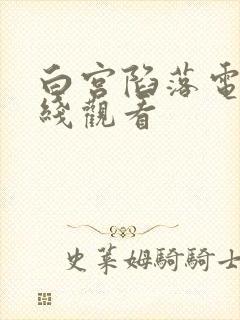 白宮陷落電
綫觀看
史萊姆騎騎士